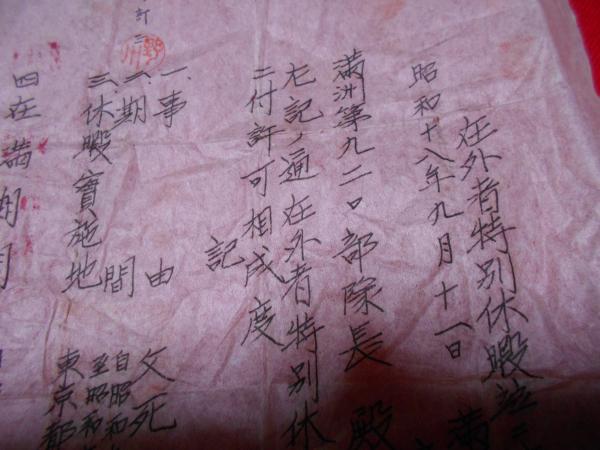 在外者特別休暇並ニ
昭和十八年九月十一日
満洲第九二〇部隊長 殿
左記ノ通在外者特別休
ニ付許可相成度
記
一、事 由 父死
二、期 間 自昭和
至昭和
三、休暇實施地 東京都
四在満期間
訂三